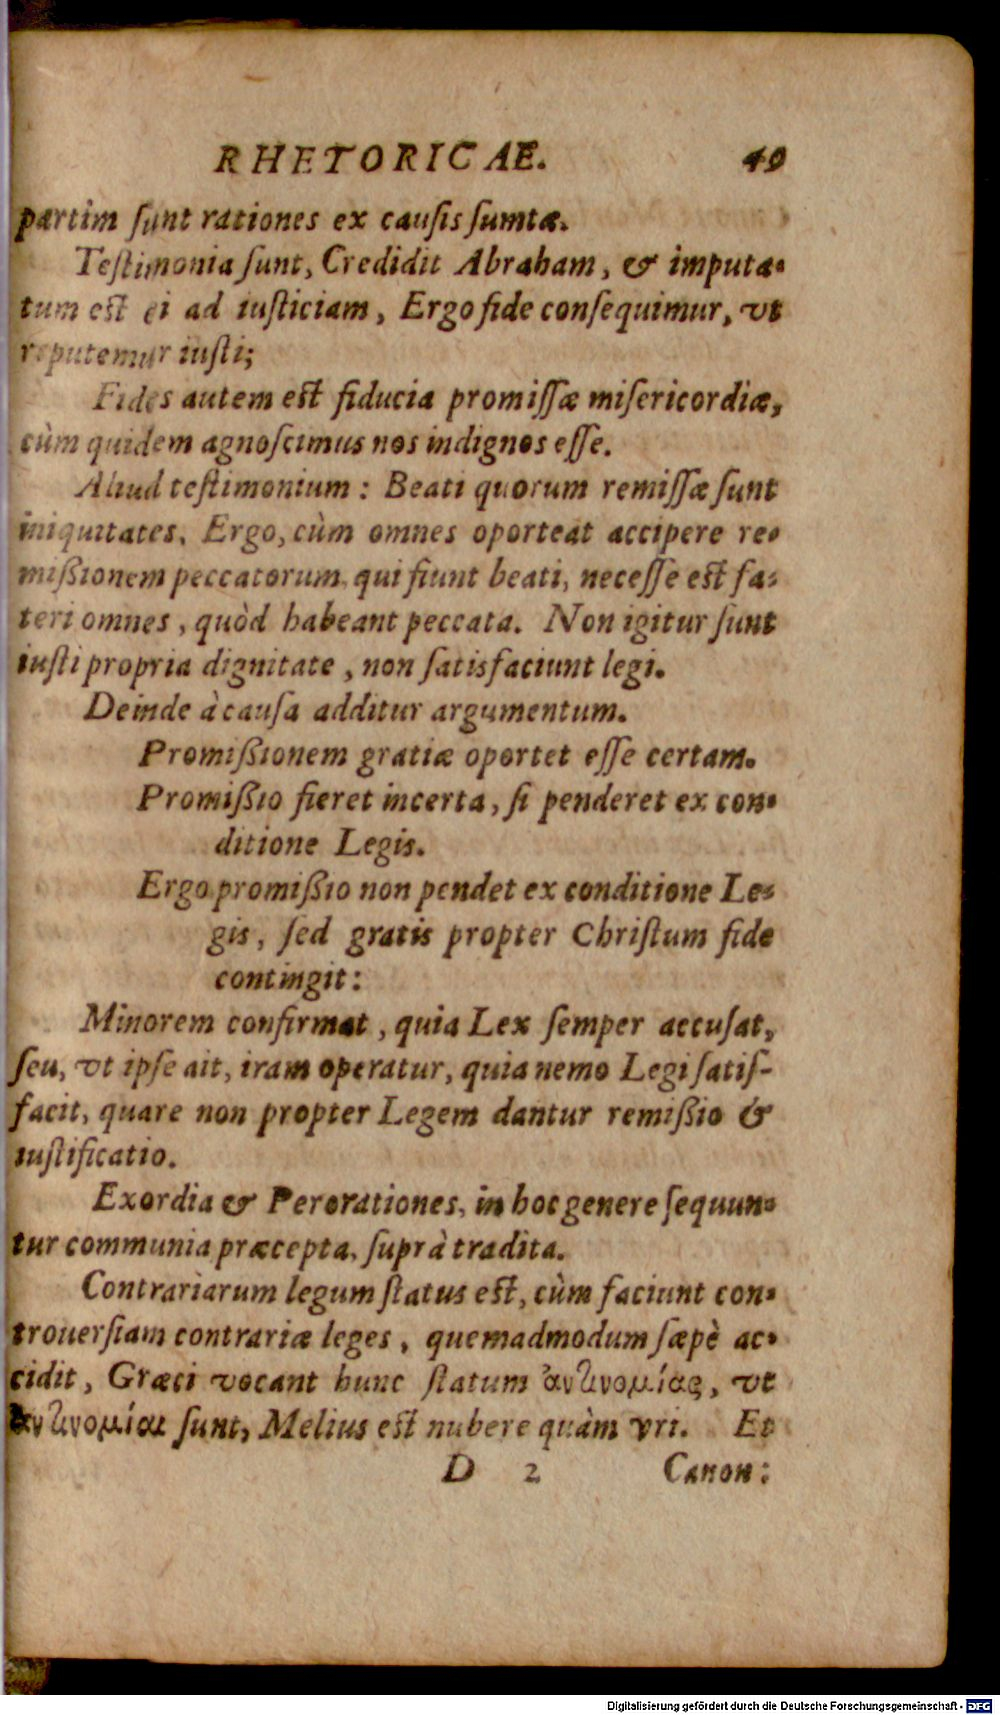 RHETORICAE. 49
partim ſunt rationes ex cauſis ſumtæ.
Teſtimonia ſunt, Credidit Abraham, & imputa-
tum eſt ei ad iuſticiam, Ergo fide conſequimur, vt
reputemur iuſti;
Fides autem eſt fiducia promiſſæ miſericordiæ,
cùm quidem agnoſcimus nos indignos eſſe.
Aliud teſtimonium: Beati quorum remiſſæ ſunt
iniquitates. Ergo, cùm omnes oporteat accipere re-
mißionem peccatorum, qui fiunt beati, neceſſe eſt fa-
teri omnes, quòd habeant peccata. Non igitur ſunt
iuſti propria dignitate, non ſatisfaciunt legi.
Deinde à cauſa additur argumentum.
Promißionem gratiæ oportet eſſe certam.
Promißio fieret incerta, ſi penderet ex con-
ditione Legis.
Ergo promißio non pendet ex conditione Le-
gis, ſed gratis propter Chriſtum fide
contingit:
Minorem confirmat, quia Lex ſemper accuſat,
ſeu, vt ipſe ait, iram operatur, quia nemo Legi ſatiſ-
facit, quare non propter Legem dantur remißio &
iuſtificatio.
Exordia & Perorationes, in hoc genere ſequun-
tur communia præcepta, ſuprà tradita.
Contrariarum legum ſtatus eſt, cùm faciunt con-
trouerſiam contrariæ leges, quemadmodum ſæpè ac-
cidit, Græci vocant hunc ſtatum ἀντινομίας, vt
ἀντινομίαι ſunt, Melius eſt nubere quàm vri. Et
D 2 Canon:
Digitalisierung gefördert durch die Deutsche Forschungsgemeinschaft - DFG